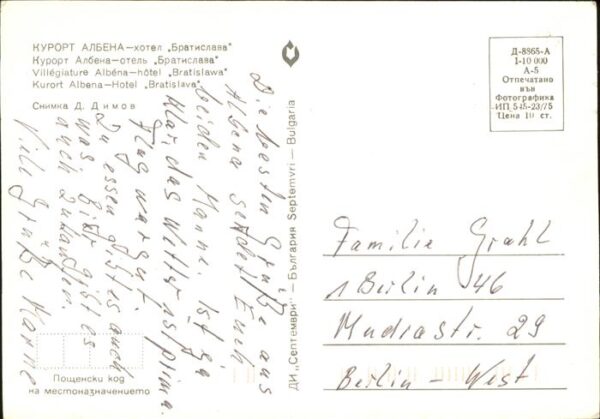 КУРОРТ АЛБЕНА—хотел „Братислава“
Курорт Албена—отель „Братислава“
Villégiature Albéna—hôtel „Bratislawa“
Kurort Albena—Hotel „Bratislava“
Снимка Д. Димов
Д-8865-А
1-10 000
А-5
Отпечатано
във
Фотографика
ИП. 545-23/75
Цена 10 ст.
Die besten Grüße aus
Albena sendet Euch
beiden Manne. Ist ja
klar, das Wetter ist prima.
Flug war gut.
Zu essen gibt es auch
was, Bier gibt es
auch
Viele Grüße Manne
ДИ „Септември“ — България Septemvri — Bulgaria
Familie Grahl
1 Berlin 46
Mudrastr. 29
Berlin - West
Пощенски код
на местоназначението